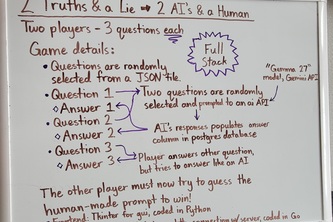 2 Truths & a Lie → 2 AI's & a Human
Two players - 3 questions each
Game details:
Full
Stack
• Questions are randomly
selected from a JSON file.
• Question 1
◇ Answer 1
• Question 2
◇ Answer 2
• Question 3
◇ Answer 3
Two questions are randomly
selected and prompted to an ai API
"Gemma 27"
model, Gemini API
AI's responses populates answer
column in postgres database
Player answers other question,
but tries to answer like an AI
The other player must now try to guess the
human-made prompt to win!
Frontend: Tkinter for gui, coded in Python
w/ server, coded in Go